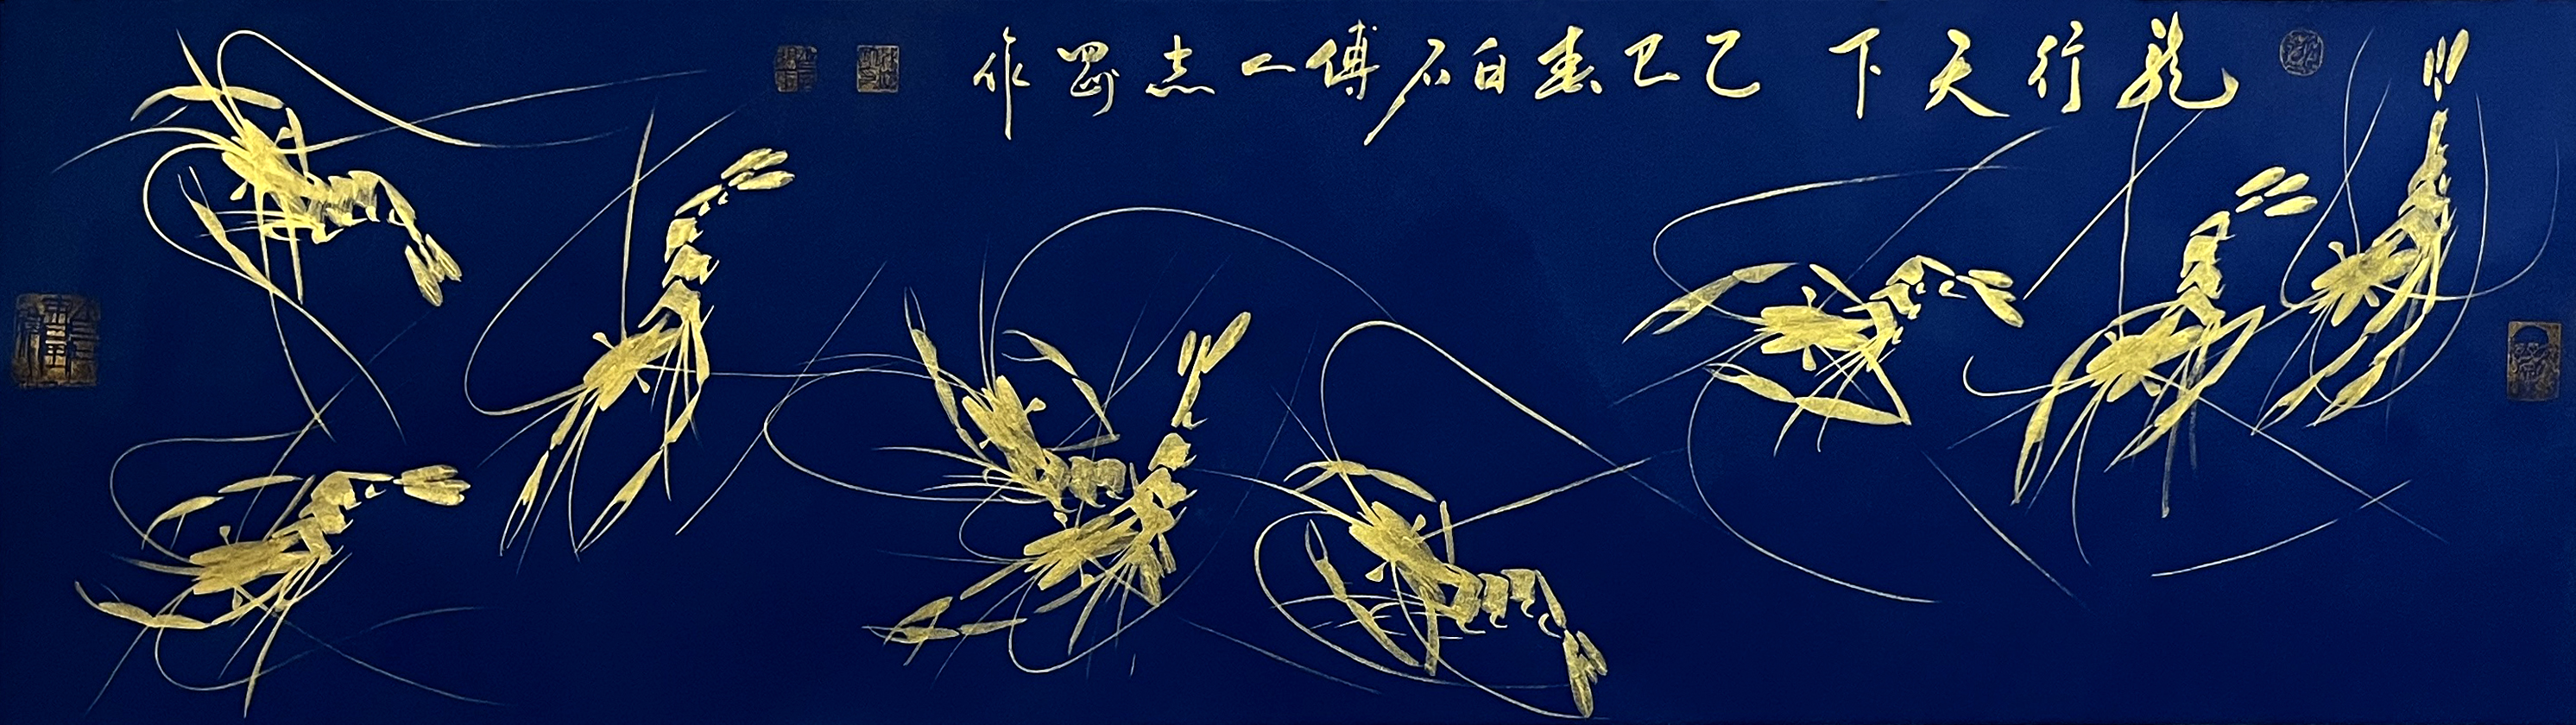 龍行天下 乙巳春白石傳人志剛作